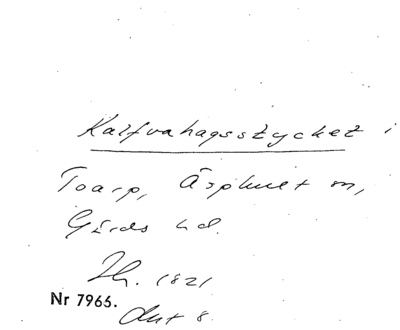 Kalfvahagsstycket i
Toarp, Äsphult sn,
Gärds hd.
Lh. 1821
Nr 7965.
Akt 8